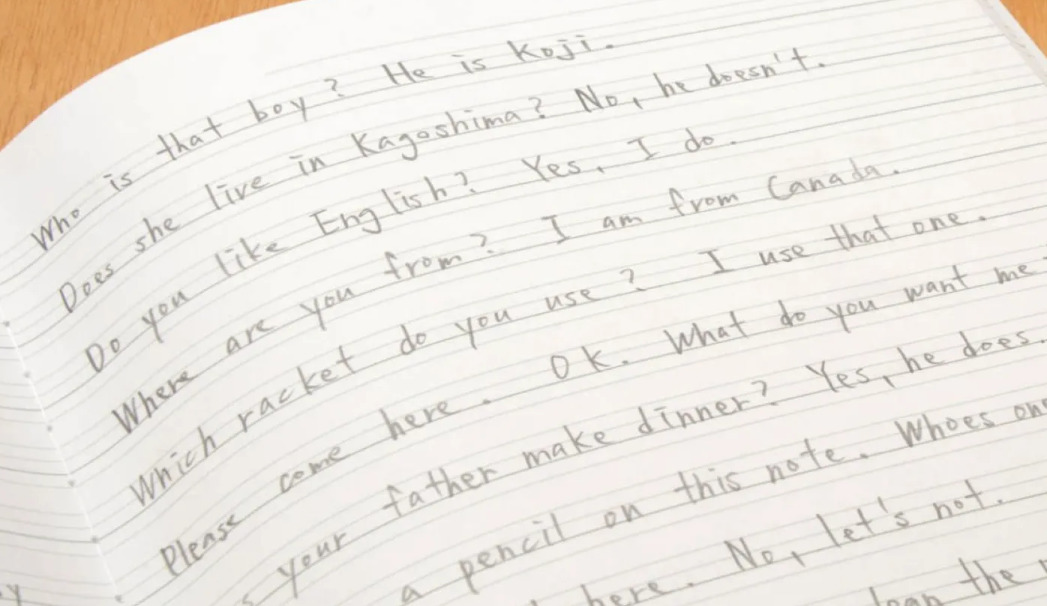 Who is that boy? He is Koji.
Does she live in Kagoshima? No, he doesn't.
Do you like English? Yes, I do.
Where are you from? I am from Canada.
Which racket do you use? I use that one.
Please come here. Ok. What do you want me
your father make dinner? Yes, he does.
a pencil on this note. Whoes
here. No, let's not.
the